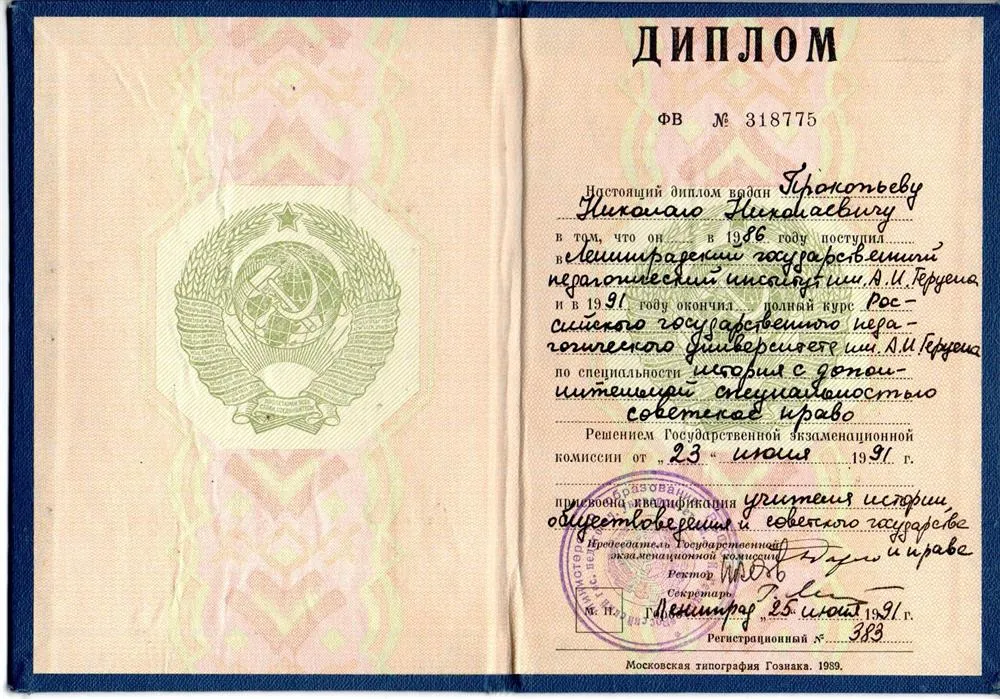 ДИПЛОМ
ФВ № 318775
Настоящий диплом выдан Прокопьеву
Николаю Николаевичу
в том, что он в 1986 году поступил
в Ленинградский государственный
педагогический институт им. А.И. Герцена
и в 1991 году окончил полный курс Рос-
сийского государственного педа-
гогического университета им. А.И. Герцена
по специальности история с допол-
нительной специальностью
советское право
Решением Государственной экзаменационной
комиссии от „23“ июня 1991 г.
присвоена квалификация учителя истории,
обществоведения и советского государства
и права
Председатель Государственной
экзаменационной комиссии
Ректор
Секретарь
М. П. Город Ленинград „25“ июня 1991 г.
Регистрационный № 383
Московская типография Гознака. 1989.